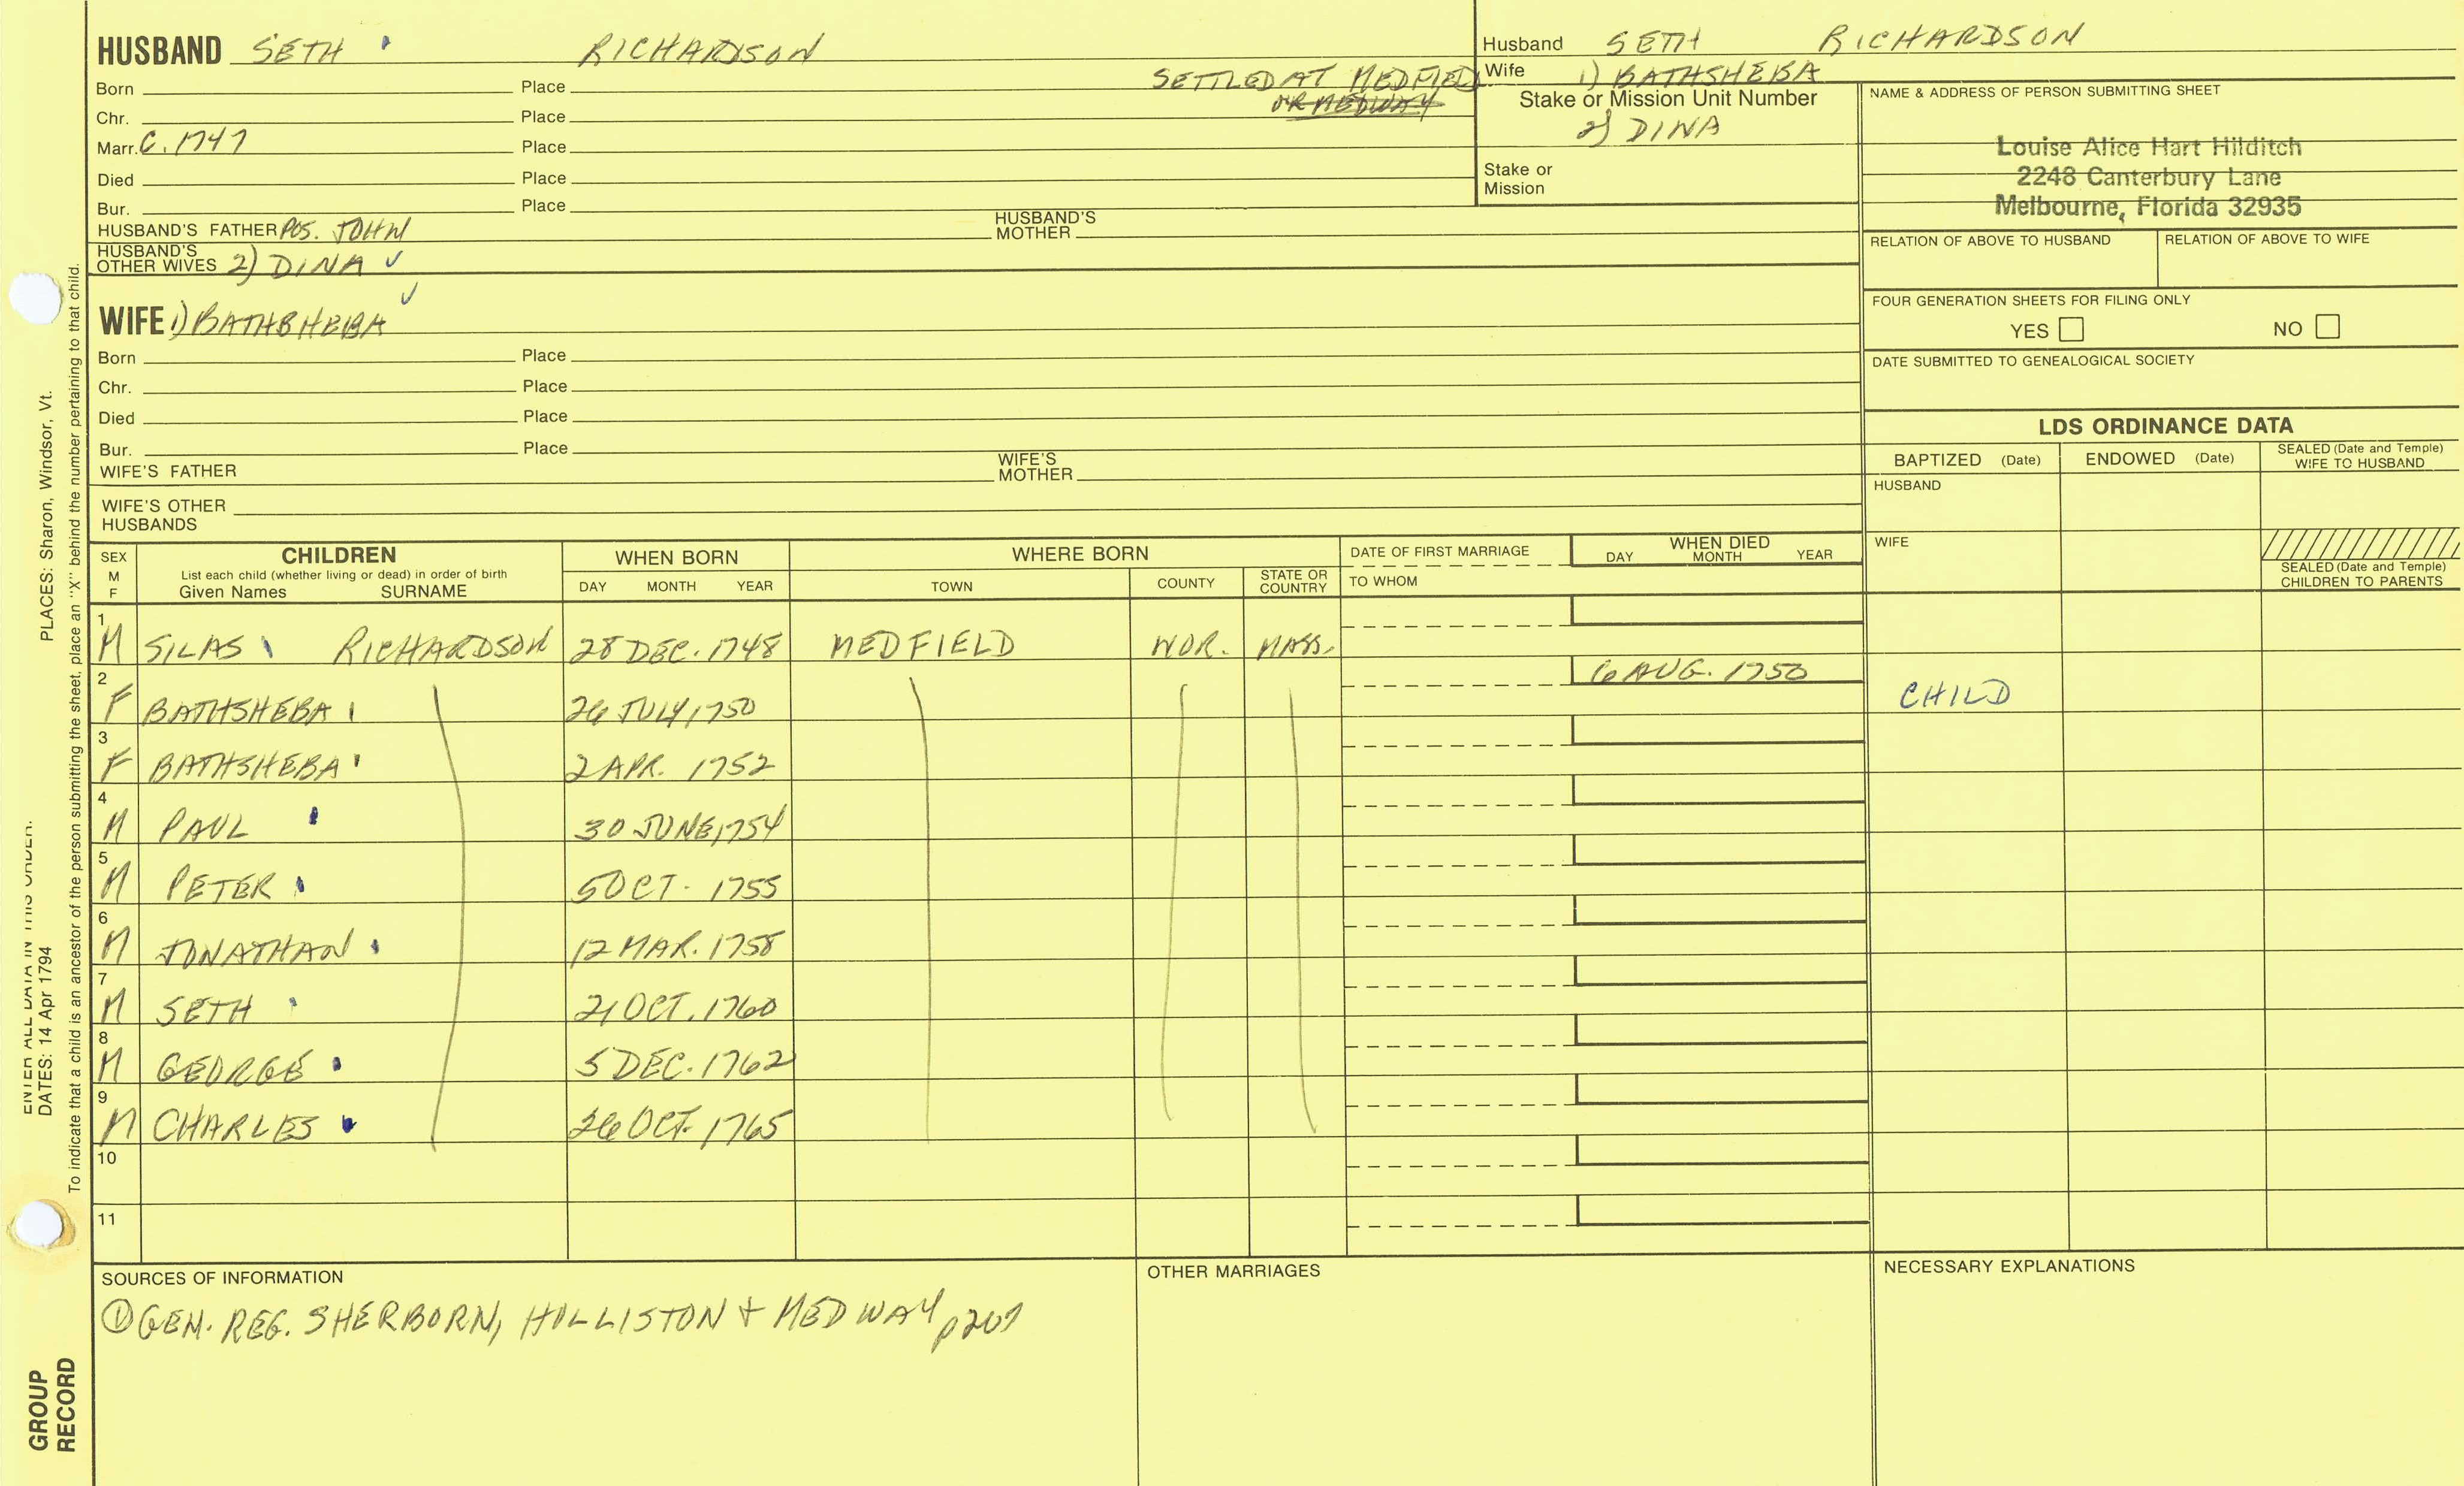 HUSBAND SETH RICHARDSON
Born Place SETTLED AT MEDFIELD
OR MEDWAY
Chr. Place
Marr. C. 1747 Place
Died Place
Bur. Place
HUSBAND'S FATHER POS. JOHN HUSBAND'S MOTHER
HUSBAND'S OTHER WIVES 2) DINA
WIFE 1) BATHSHEBA
Born Place
Chr. Place
Died Place
Bur. Place
WIFE'S FATHER WIFE'S MOTHER
WIFE'S OTHER HUSBANDS
Husband SETH RICHARDSON
Wife 1) BATHSHEBA
Stake or Mission Unit Number
2) DINA
Stake or
Mission
NAME & ADDRESS OF PERSON SUBMITTING SHEET
Louise Alice Hart Hilditch
2248 Canterbury Lane
Melbourne, Florida 32935
RELATION OF ABOVE TO HUSBAND RELATION OF ABOVE TO WIFE
FOUR GENERATION SHEETS FOR FILING ONLY
YES NO
DATE SUBMITTED TO GENEALOGICAL SOCIETY
LDS ORDINANCE DATA
BAPTIZED (Date) ENDOWED (Date) SEALED (Date and Temple) WIFE TO HUSBAND
HUSBAND
WIFE
SEALED (Date and Temple) CHILDREN TO PARENTS
SEX M F
CHILDREN
List each child (whether living or dead) in order of birth
Given Names SURNAME
WHEN BORN
DAY MONTH YEAR
WHERE BORN
TOWN COUNTY STATE OR COUNTRY
DATE OF FIRST MARRIAGE
TO WHOM
WHEN DIED
DAY MONTH YEAR
1 M SILAS RICHARDSON 28 DEC. 1748 MEDFIELD WOR. MASS.
2 F BATHSHEBA 26 JULY, 1750 6 AUG. 1750 CHILD
3 F BATHSHEBA 2 APR. 1752
4 M PAUL 30 JUNE, 1754
5 M PETER 5 OCT. 1755
6 M JONATHAN 12 MAR. 1758
7 M SETH 21 OCT. 1760
8 M GEORGE 5 DEC. 1762
9 M CHARLES 26 OCT. 1765
10
11
SOURCES OF INFORMATION
① GEN. REG. SHERBORN, HOLLISTON + MEDWAY p207
OTHER MARRIAGES
NECESSARY EXPLANATIONS
PLACES: Sharon, Windsor, Vt.
ENTER ALL DATA IN THIS ORDER:
DATES: 14 Apr 1794
To indicate that a child is an ancestor of the person submitting the sheet, place an "X" behind the number pertaining to that child.
GROUP
RECORD